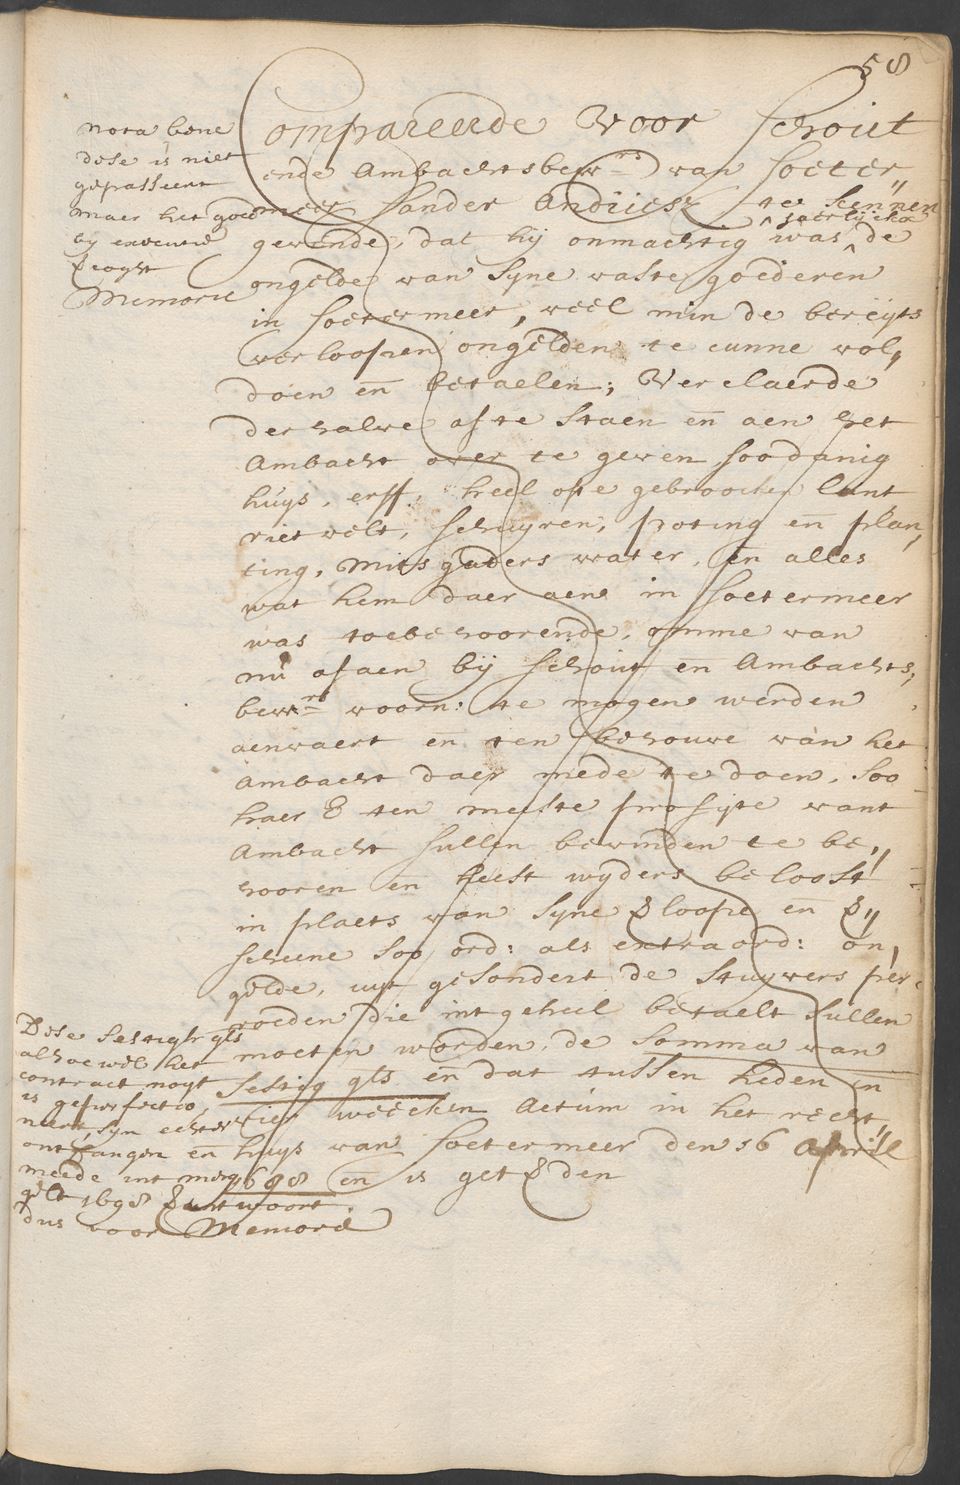 58
Compareerde Voor Schout
ende Ambachtsbewrs van Soeter
meer Sander Andriesz te kennen
gevende, dat hij onmachtig was jaerlijckx de
ongelde van syne vaste goederen
in Soetermeer, veel min de bereyts
verloopen ongelden te cunne vol,
doen en betaelen; Verclaerde
derhalve af te staen en aen het
Ambacht over te geven soodanig
huys, erff, heel ofte gebroocken lant
rietvelt, schuyren, poting en plan,
ting, mitsgaders water, en alles
wat hem daer aene in Soetermeer
was toebehoorende, omme van
nu af aen bij Schout en Ambachts,
bewrs voorn: te mogen werden
aenvaert en ten behouve van het
Ambacht daer mede te doen, soo
haer E ten meeste profijte vant
Ambacht sullen bevinden te be,,
hooren en heeft wyders belooft
in plaets van syne verloope en ver,,
scheene soo ord: als extraord: on,
gelde, uyt gesondert de stuyvers per
roeden die int geheel betaelt sullen
moeten worden, de somma van
sestig gls en dat tussen heden en
vier weecken Actum in het recht,
huys van Soetermeer den 16 April
1698 en is get
nota bene
dese is niet
gepasseert
maer het goed
by
vercoght
Memorie
Dese sestigh gls
alhoewel het
contract noyt
is geperfectio,
neert, syn echter
ontfangen en
meede int morg
gelt 1698 verantwoort
dus voor Memorie